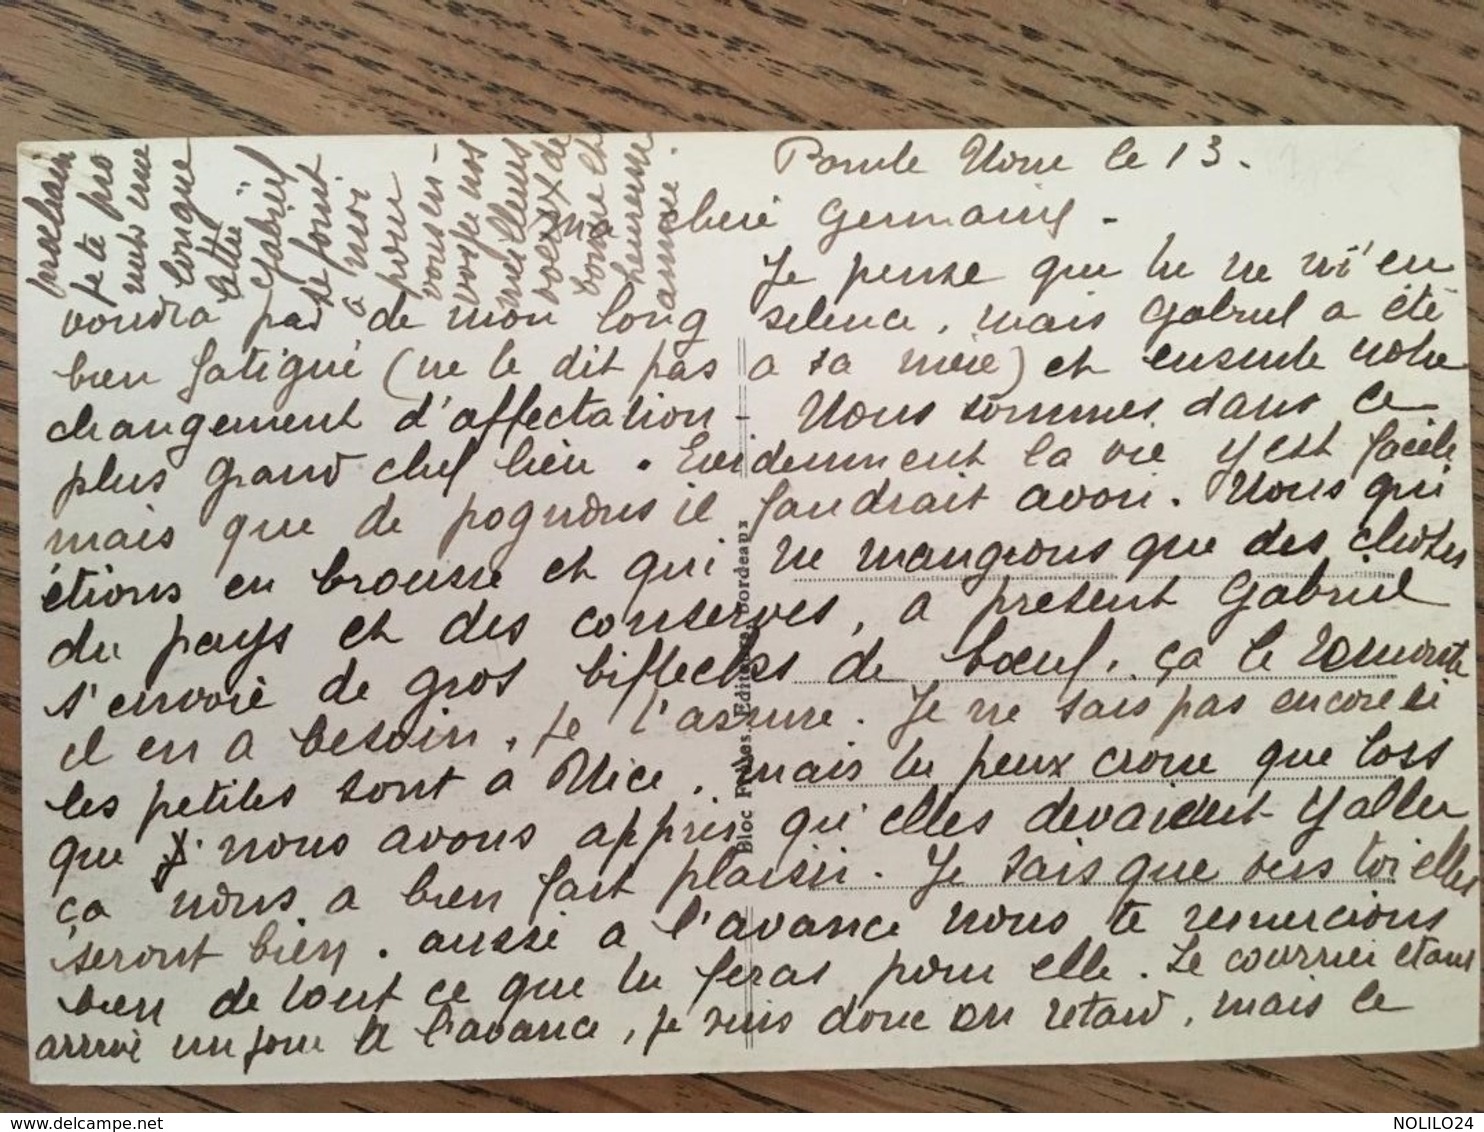 Pointe Noire le 13.
ma chere Germaine -
Je pense que tu ne m'en
voudra pas de mon long silence, mais Gabriel a été
bien fatigué (ne le dit pas a sa mère) et ensuite notre
changement d'affectation - Nous sommes dans le
plus grand chef lieu. Evidemment la vie y est facile
mais que de pognons il faudrait avoir. Nous qui
étions en brousse et qui ne mangions que des choses
du pays et des conserves, a present Gabriel
s'envoie de gros biftecks de bœuf, ça le remonte
il en a besoin, je l'assure. Je ne sais pas encore si
les petites sont a Nice, mais tu peux croire que lors
que nous avons appris qu'elles devaient y aller
ça nous a bien fait plaisir. Je sais que vers toi elles
seront bien. aussi a l'avance nous te remercions
bien de tout ce que tu feras pour elle. Le courrier étant
arrivé un jour a l'avance, je suis donc en retard, mais le
prochain
je te pro
mets une
longue
lettre
Gabriel
se joint
à moi
pour
vous en-
voyer nos
meilleurs
voeux de
bonne et
heureuse
année.
Bloc Frères, Editeurs, Bordeaux
NOLILO24